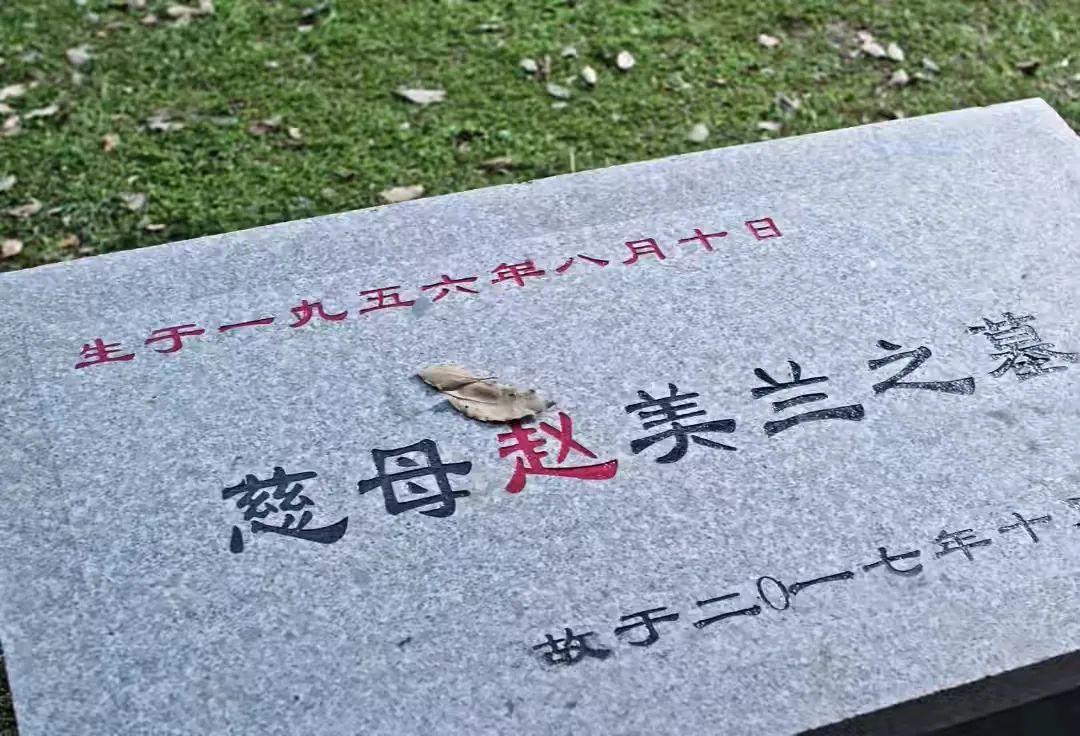 生于一九五六年八月十日
慈母赵美兰之墓
故于二〇一七年十